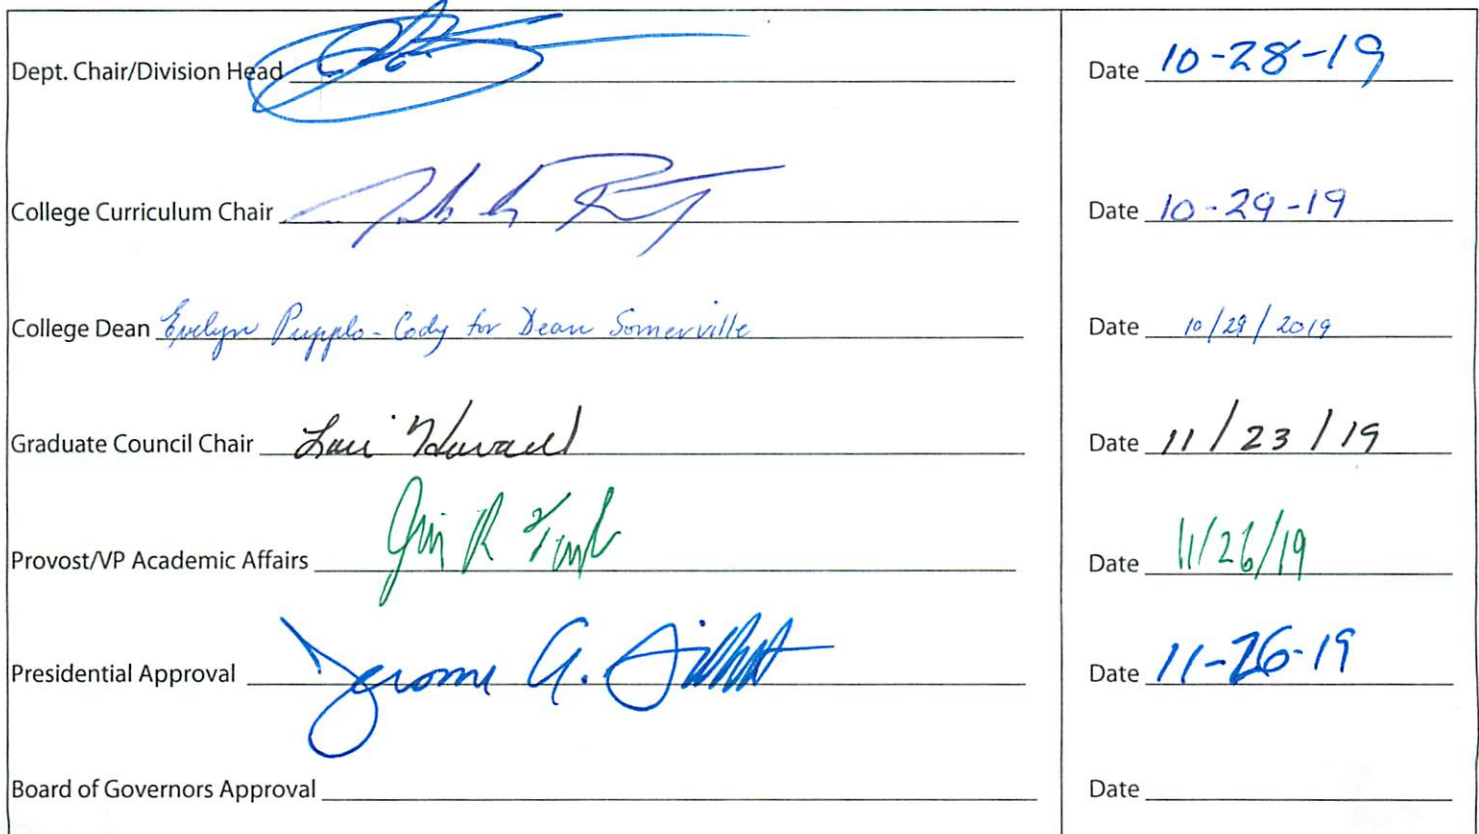 Dept. Chair/Division Head Date 10-28-19
College Curriculum Chair Date 10-29-19
College Dean Evelyn Pupplo-Cody for Dean Somerville Date 10/29/2019
Graduate Council Chair Lori Howard Date 11/23/19
Provost/VP Academic Affairs Date 11/26/19
Presidential Approval Jerome A. Gilbert Date 11-26-19
Board of Governors Approval Date